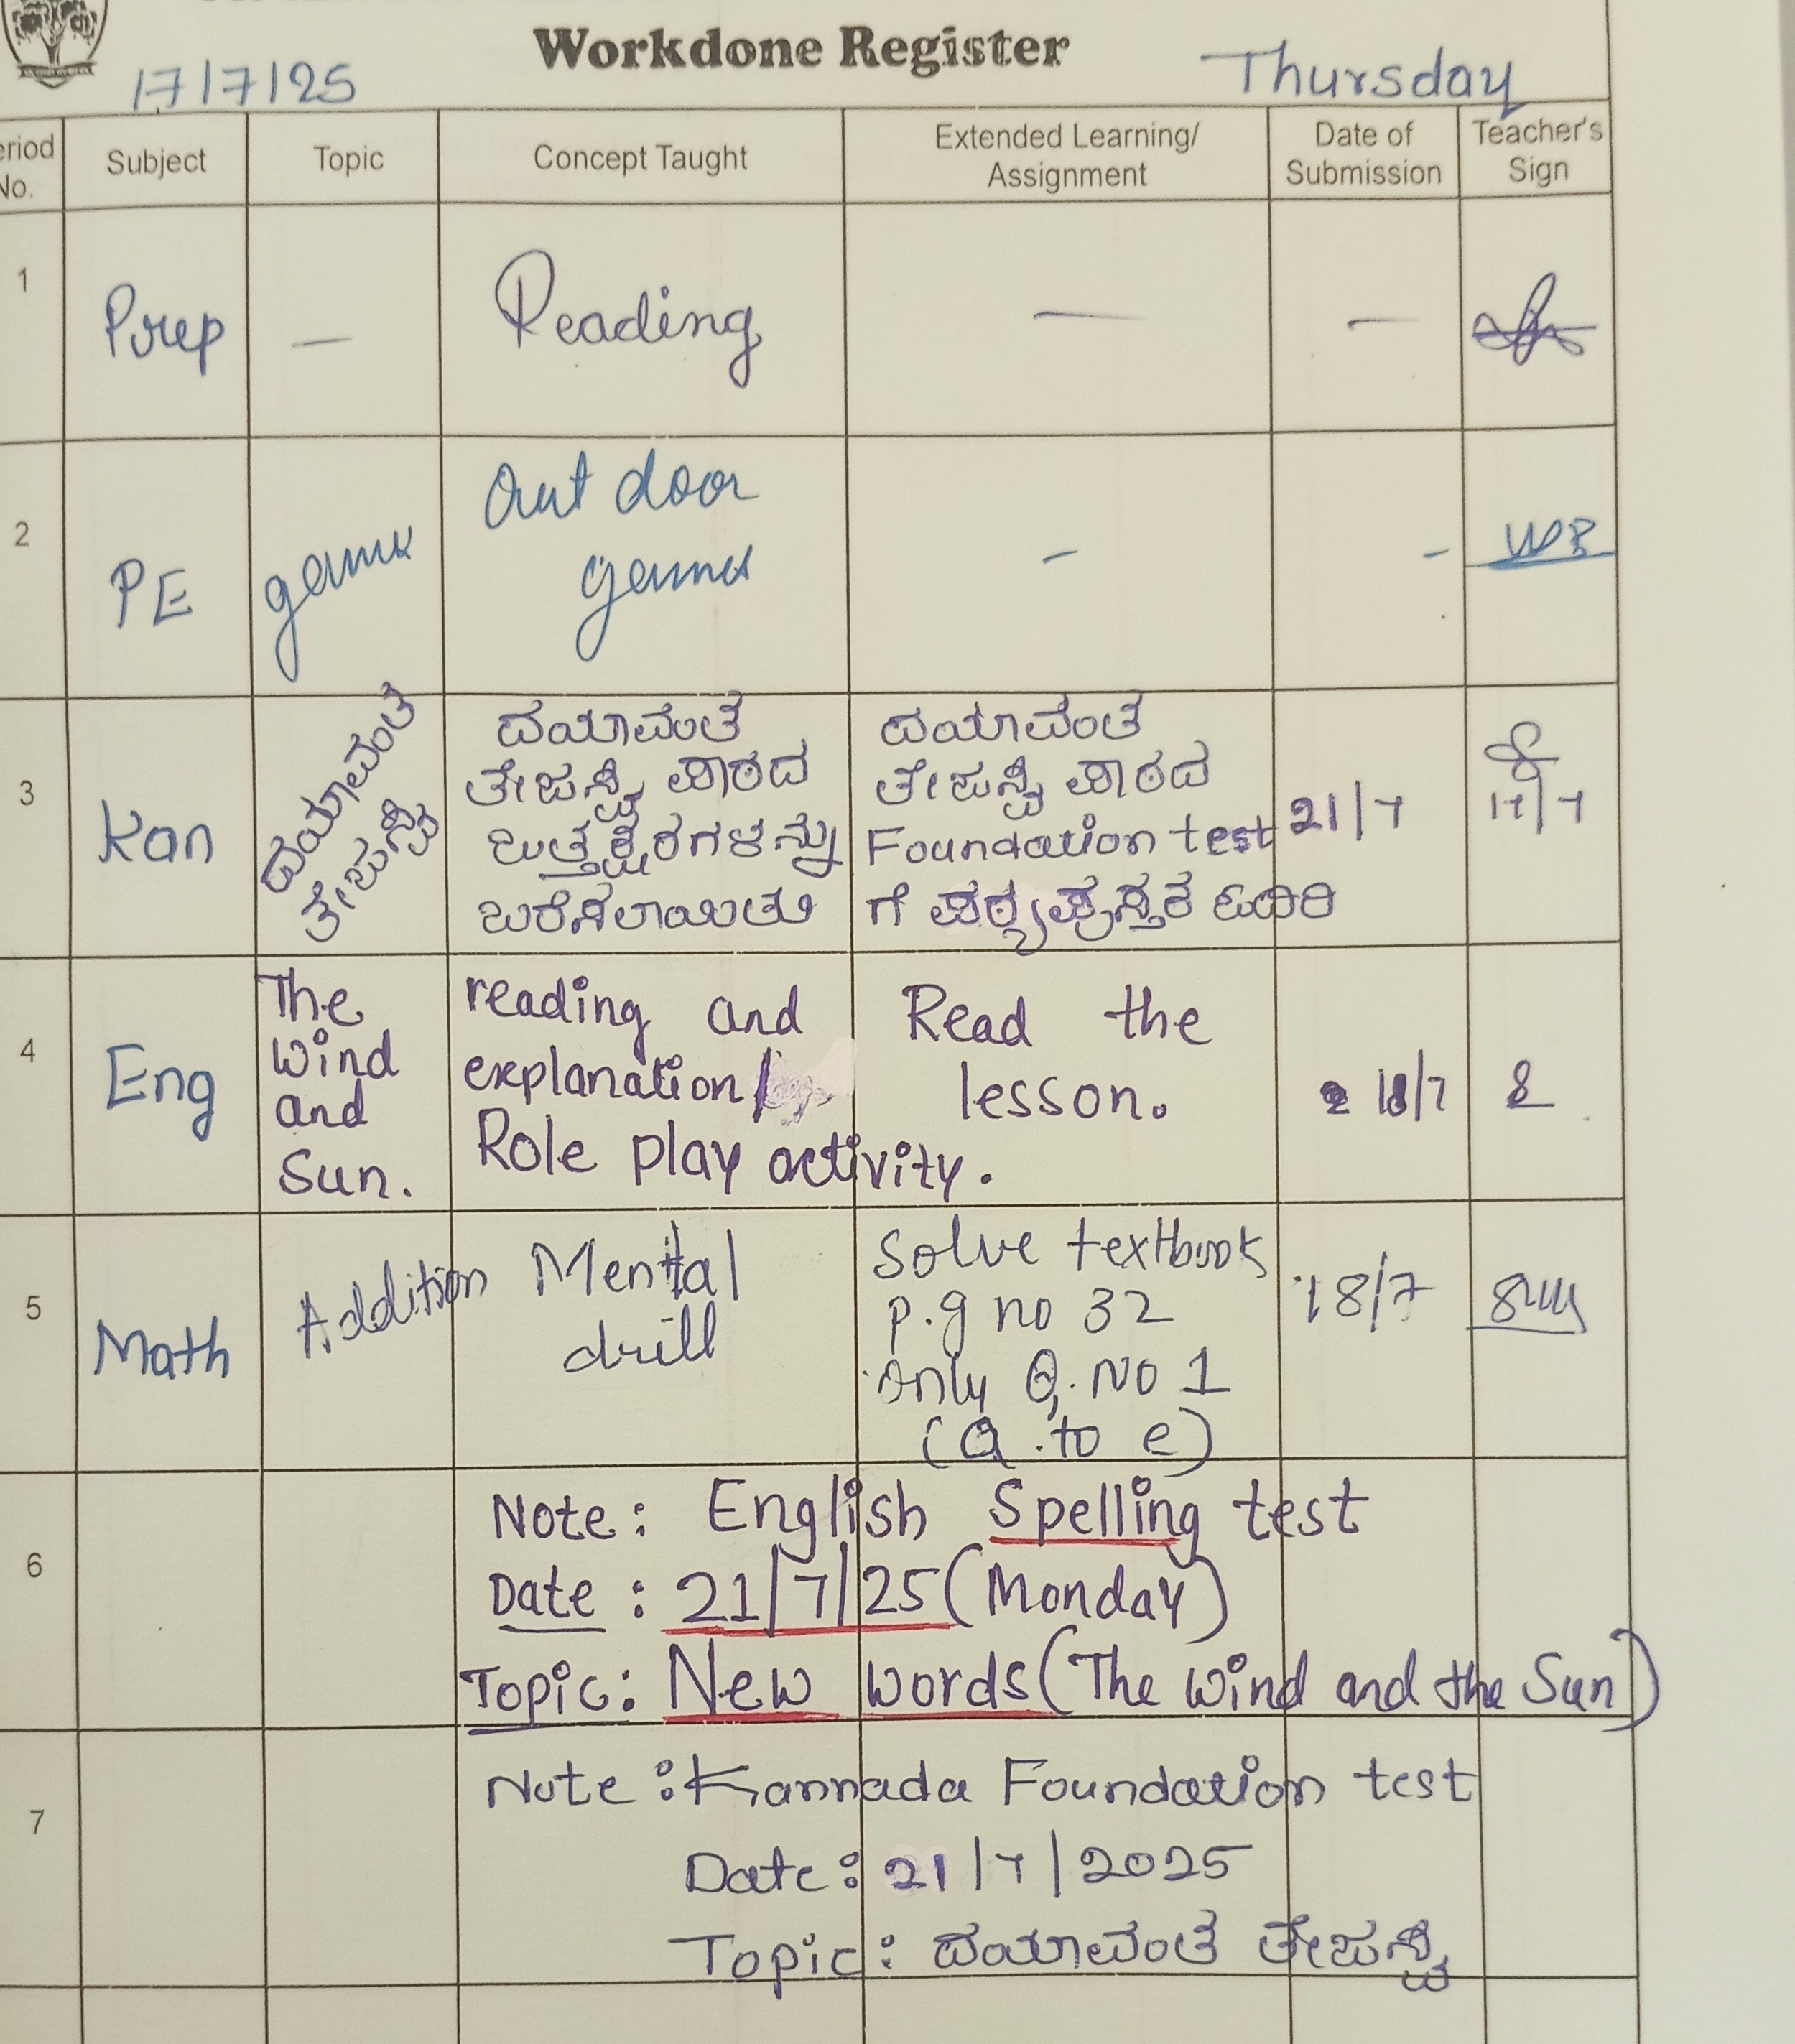 Workdone Register
17/7/25
Thursday
Period No.
Subject
Topic
Concept Taught
Extended Learning/
Assignment
Date of
Submission
Teacher's
Sign
1
Prep
—
Reading
—
—
2
PE
games
Out door
games
-
-
3
Kan
ದಯಾವಂತೆ
ತೇಜಸ್ವಿ
ದಯಾವಂತೆ
ತೇಜಸ್ವಿ ಪಾಠದ
ಒತ್ತಕ್ಷರಗಳನ್ನು
ಬರೆಸಲಾಯಿತು
ದಯಾವಂತೆ
ತೇಜಸ್ವಿ ಪಾಠದ
Foundation test
ಗೆ ಪಠ್ಯಪುಸ್ತಕ ಓದಿರಿ
21/7
17/7
4
Eng
The
wind
and
Sun.
reading and
explanation/
Role play activity.
Read the
lesson.
18/7
5
Math
Addition
Mental
drill
Solve textbook
p.g no 32
only Q. No 1
(a to e)
18/7
6
Note: English Spelling test
Date: 21/7/25 (Monday)
Topic: New words (The wind and the Sun)
7
Note: Kannada Foundation test
Date: 21/7/2025
Topic: ದಯಾವಂತೆ ತೇಜಸ್ವಿ